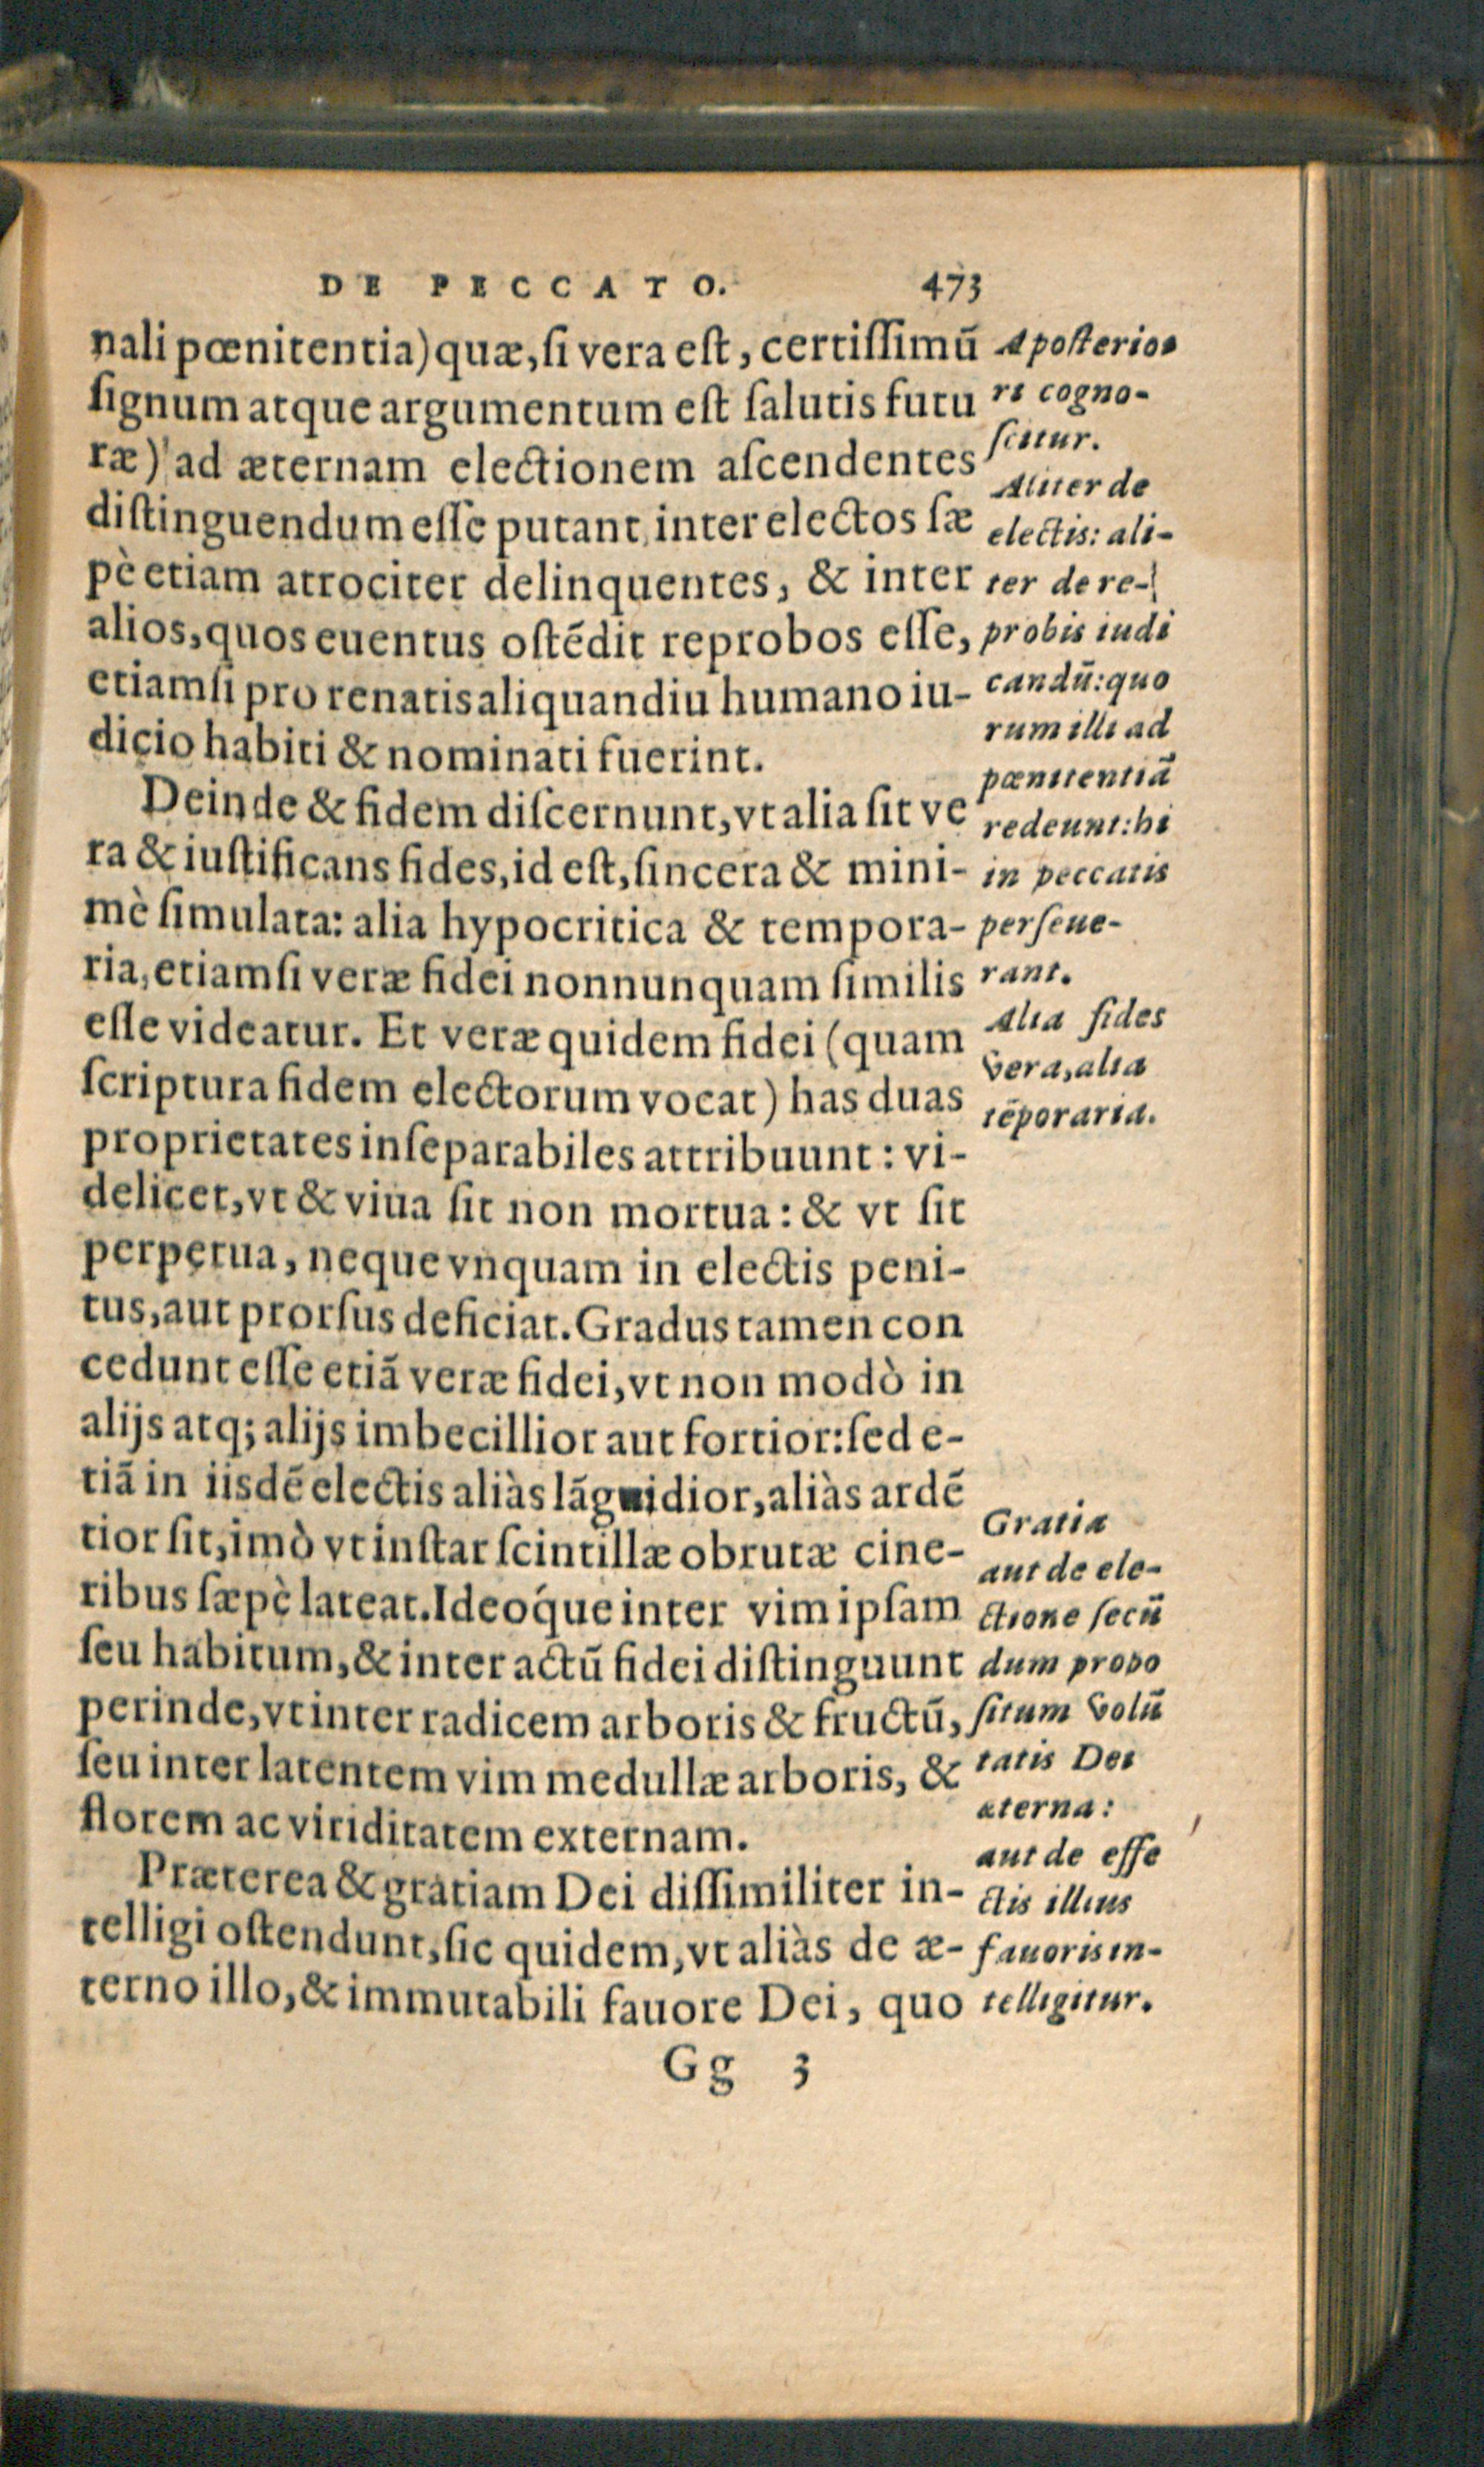 DE PECCATO. 473
nali pœnitentia) quæ, ſi vera eſt, certiſſimũ
ſignum atque argumentum eſt ſalutis futu
ræ) ad æternam electionem aſcendentes
diſtinguendum eſſe putant inter electos ſæ
pè etiam atrociter delinquentes, & inter
alios, quos euentus oſtẽdit reprobos eſſe,
etiamſi pro renatis aliquandiu humano iu-
dicio habiti & nominati fuerint.
Deinde & fidem diſcernunt, vt alia ſit ve
ra & iuſtificans fides, id eſt, ſincera & mini-
mè ſimulata: alia hypocritica & tempora-
ria, etiamſi veræ fidei nonnunquam ſimilis
eſſe videatur. Et veræ quidem fidei (quam
ſcriptura fidem electorum vocat) has duas
proprietates inſeparabiles attribuunt: vi-
delicet, vt & viua ſit non mortua: & vt ſit
perpetua, neque vnquam in electis peni-
tus, aut prorſus deficiat. Gradus tamen con
cedunt eſſe etiã veræ fidei, vt non modò in
alijs atq; alijs imbecillior aut fortior: ſed e-
tiã in iisdẽ electis aliàs lãguidior, aliàs ardẽ
tior ſit, imò vt inſtar ſcintillæ obrutæ cine-
ribus ſæpè lateat. Ideóque inter vim ipſam
ſeu habitum, & inter actũ fidei diſtinguunt
perinde, vt inter radicem arboris & fructũ,
ſeu inter latentem vim medullæ arboris, &
florem ac viriditatem externam.
Præterea & gratiam Dei diſſimiliter in-
telligi oſtendunt, ſic quidem, vt aliàs de æ-
terno illo, & immutabili fauore Dei, quo
Gg 3
A poſterio-
ri cogno-
ſcitur.
Aliter de
electis: ali-
ter de re-
probis iudi
candũ: quo
rum illi ad
pœnitentiã
redeunt: hi
in peccatis
perſeue-
rant.
Alia fides
vera, alia
tẽporaria.
Gratia
aut de ele-
ctione ſecũ
dum propo
ſitum volũ
tatis Dei
æterna:
aut de effe
ctis illius
fauoris in-
telligitur.